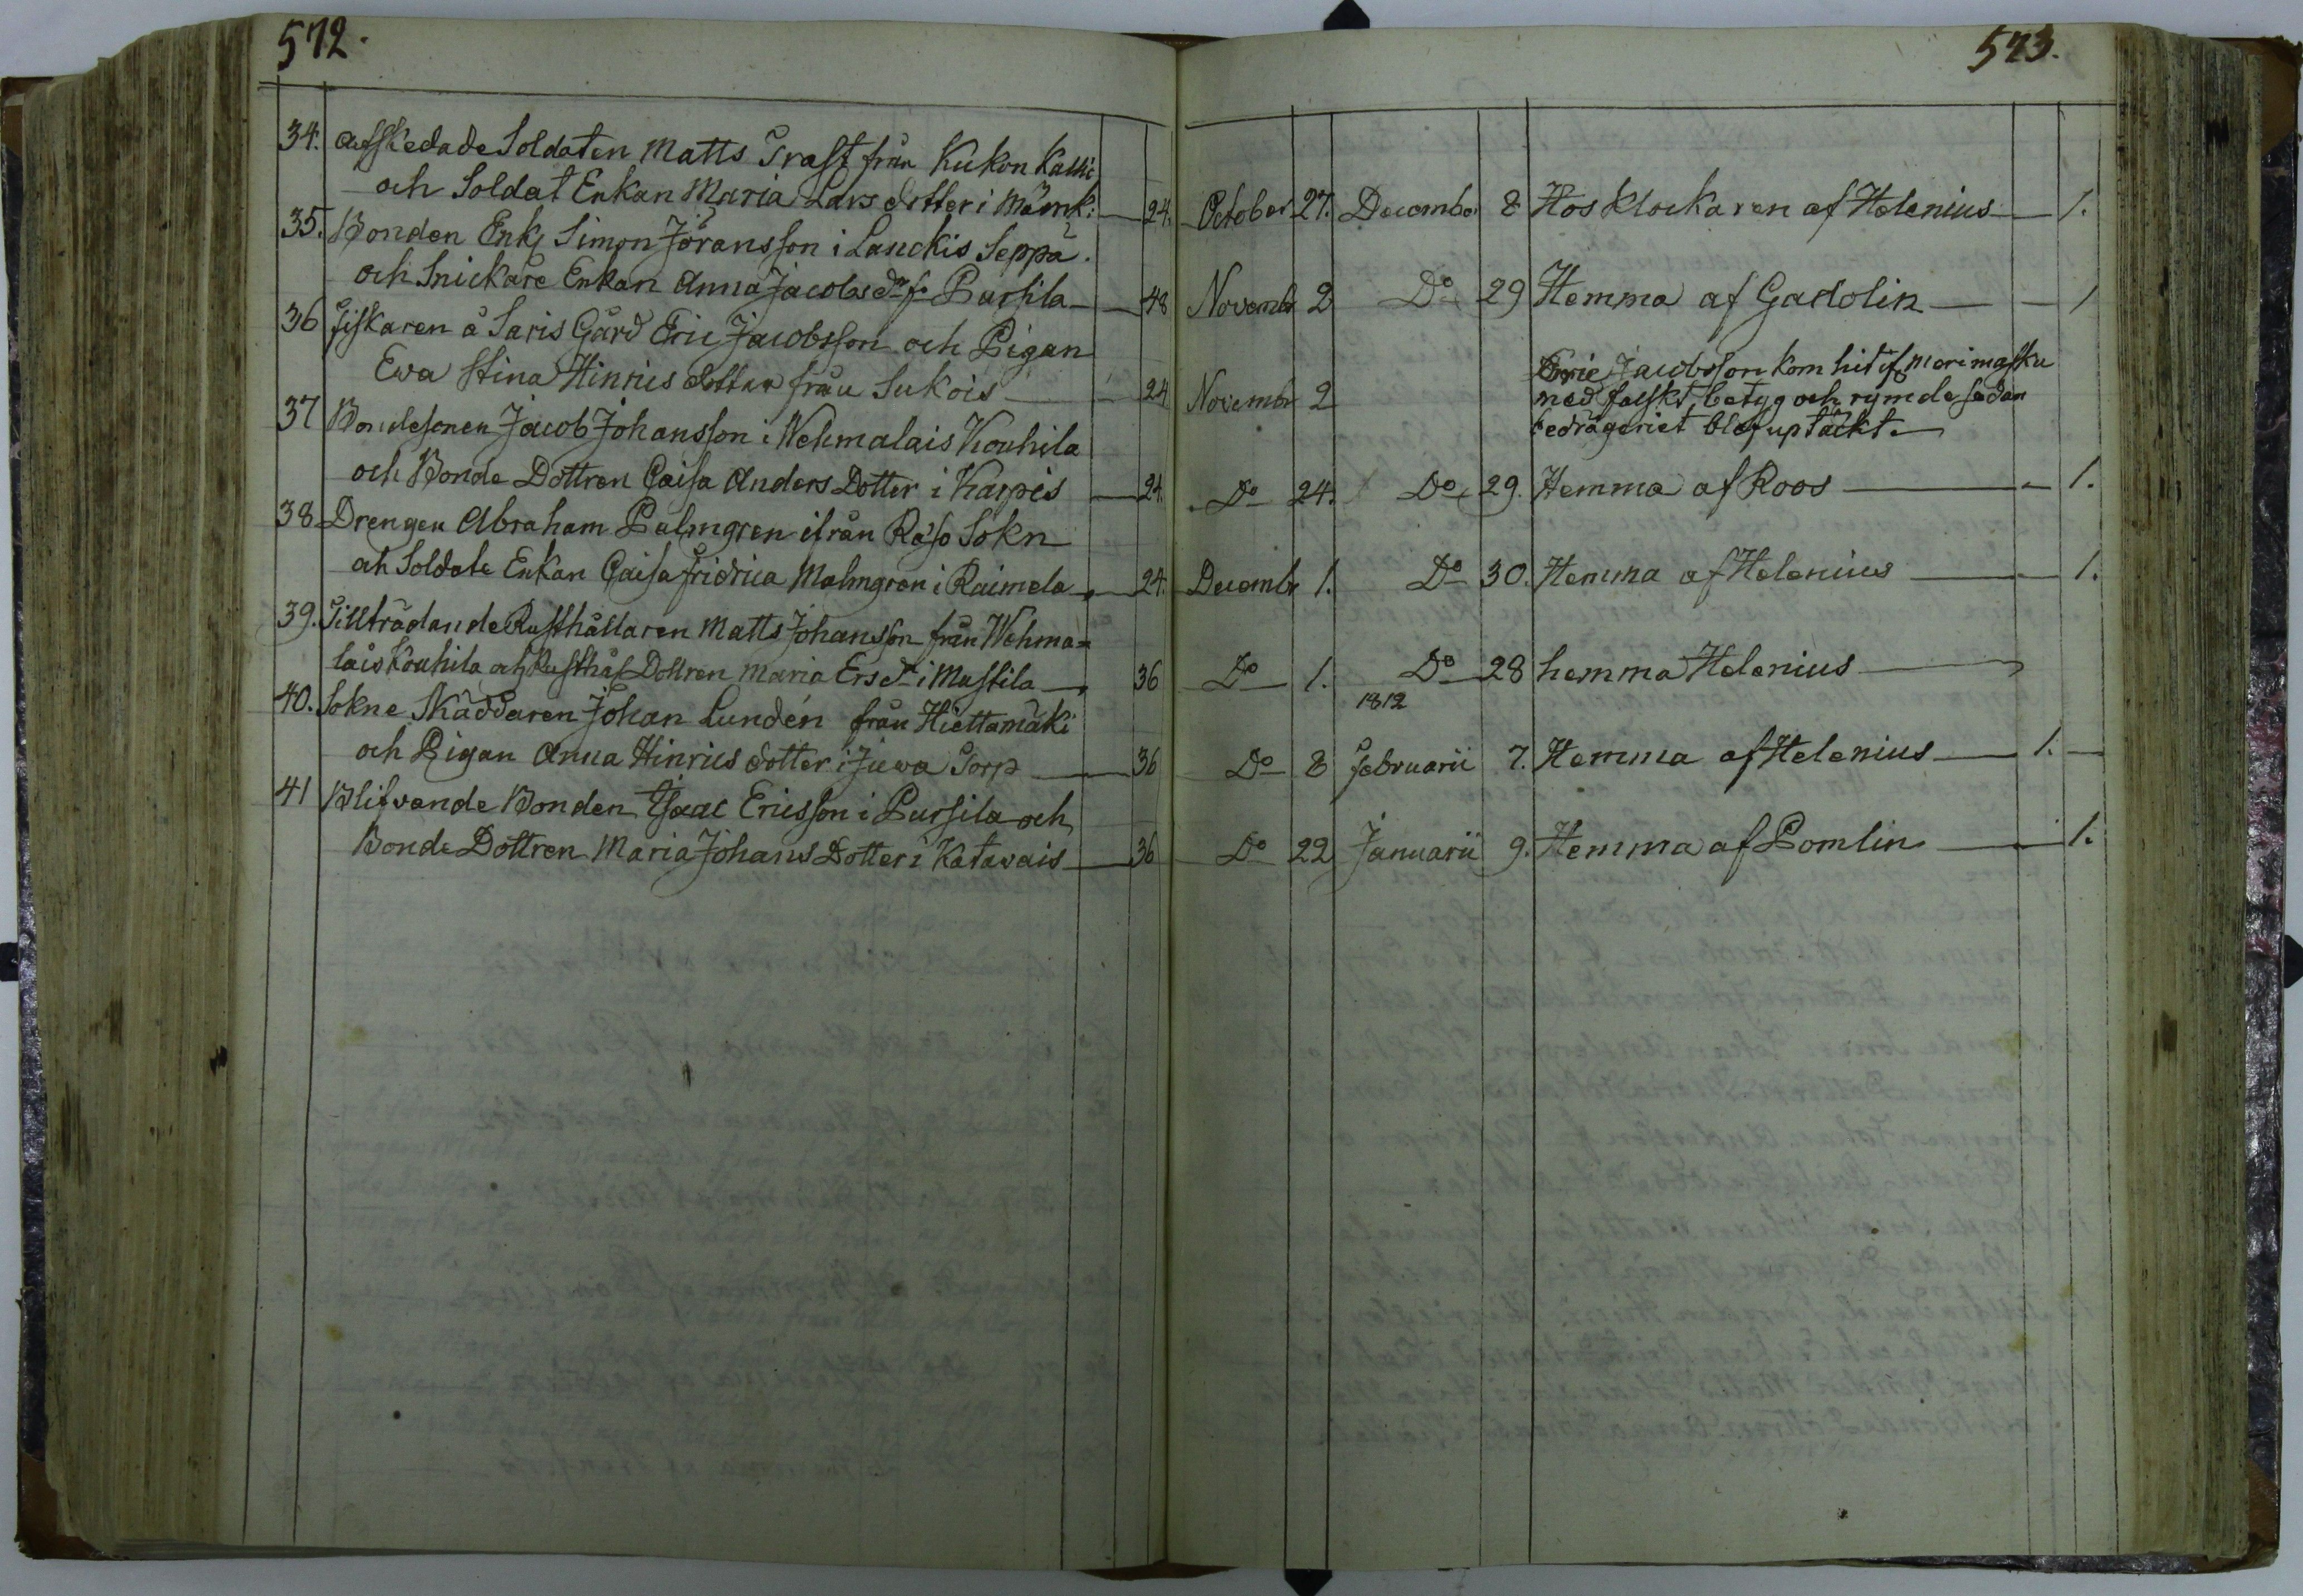 572.
34. Afskedade Soldaten Matts Trast från Kukon Kallio
och Soldat Enkan Maria Lars dotter i Mämk: 24.
35. Bonden Enkl Simon Jöransson i Lauckis Seppä.
och Snickare Enkan Anna Jacobs dr fr Pursila 48
36 Fiskaren å Saris Gård Eric Jacobsson och Pigan
Ewa Stina Hinrics dotter från Sukois 24
37 Bondesonen Jacob Johansson i Wehmalais Kouhila
och Bonde Dottren Caisa Anders Dotter i Karpis 24.
38 Drengen Abraham Palmgren ifrån Råso Sokn
och Soldate Enkan Caisa Fridrica Malmgren i Raimela 24.
39. Tillträdande Rusthållaren Matts Johansson från Wehma=
lais Kouhila och Rusthåls Dottren Maria Ers dr i Mustila 36
40. Sokne Skäddaren Johan Lundén från Hiettamäki
och Pigan Anna Hinrics dotter i Juwa Torp 36
41 Blifvande Bonden Isaac Ericsson i Pursila och
Bonde Dottren Maria Johans Dotter i Katavais 36
573.
October 27. December 8 Hos Klockaren af Helenius 1.
Novembr 2 Do 29 Hemma af Gadolin 1
Novembr 2 Eric Jacobsson kom hit if. Merimasku
med falskt betyg och rymde sedan
bedrägeriet blef uptäckt.
Do 24. Do 29. Hemma af Roos 1.
Decembr 1. Do 30. Hemma af Helenius 1.
Do 1. Do 28 hemma Helenius
1812
Do 8 Februarii 7. Hemma af Helenius 1.
Do 22 Januarii 9. Hemma af Pomlin 1.